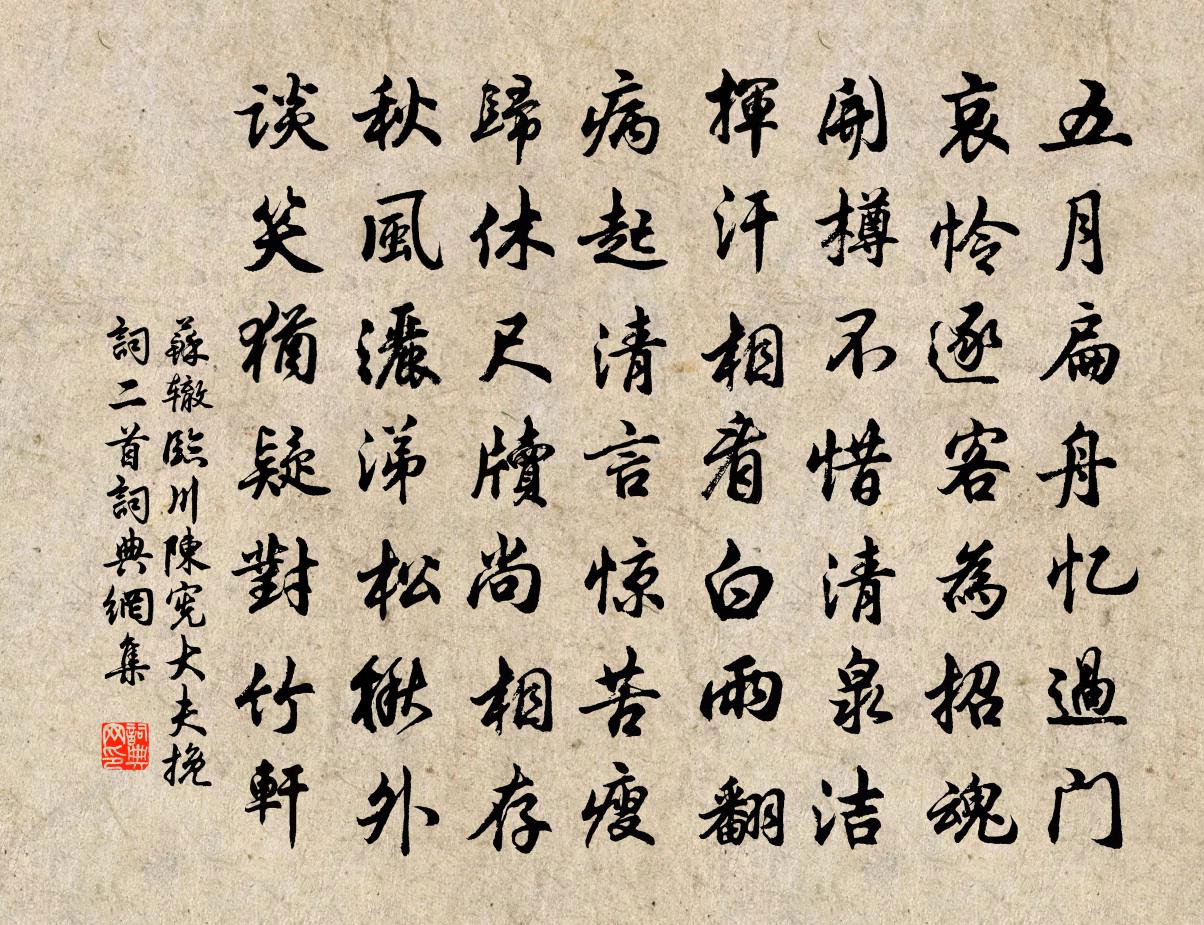 五月扁舟忆過门
哀怜逐客為招魂
開樽不惜清泉洁
揮汗相看白雨翻
病起清言惊苦瘦
歸休尺牘尚相存
秋風灑涕松楸外
谈笑猶疑對竹軒
蘇辙臨川陳憲大夫挽
詞二首詞典網集
詞典
网印